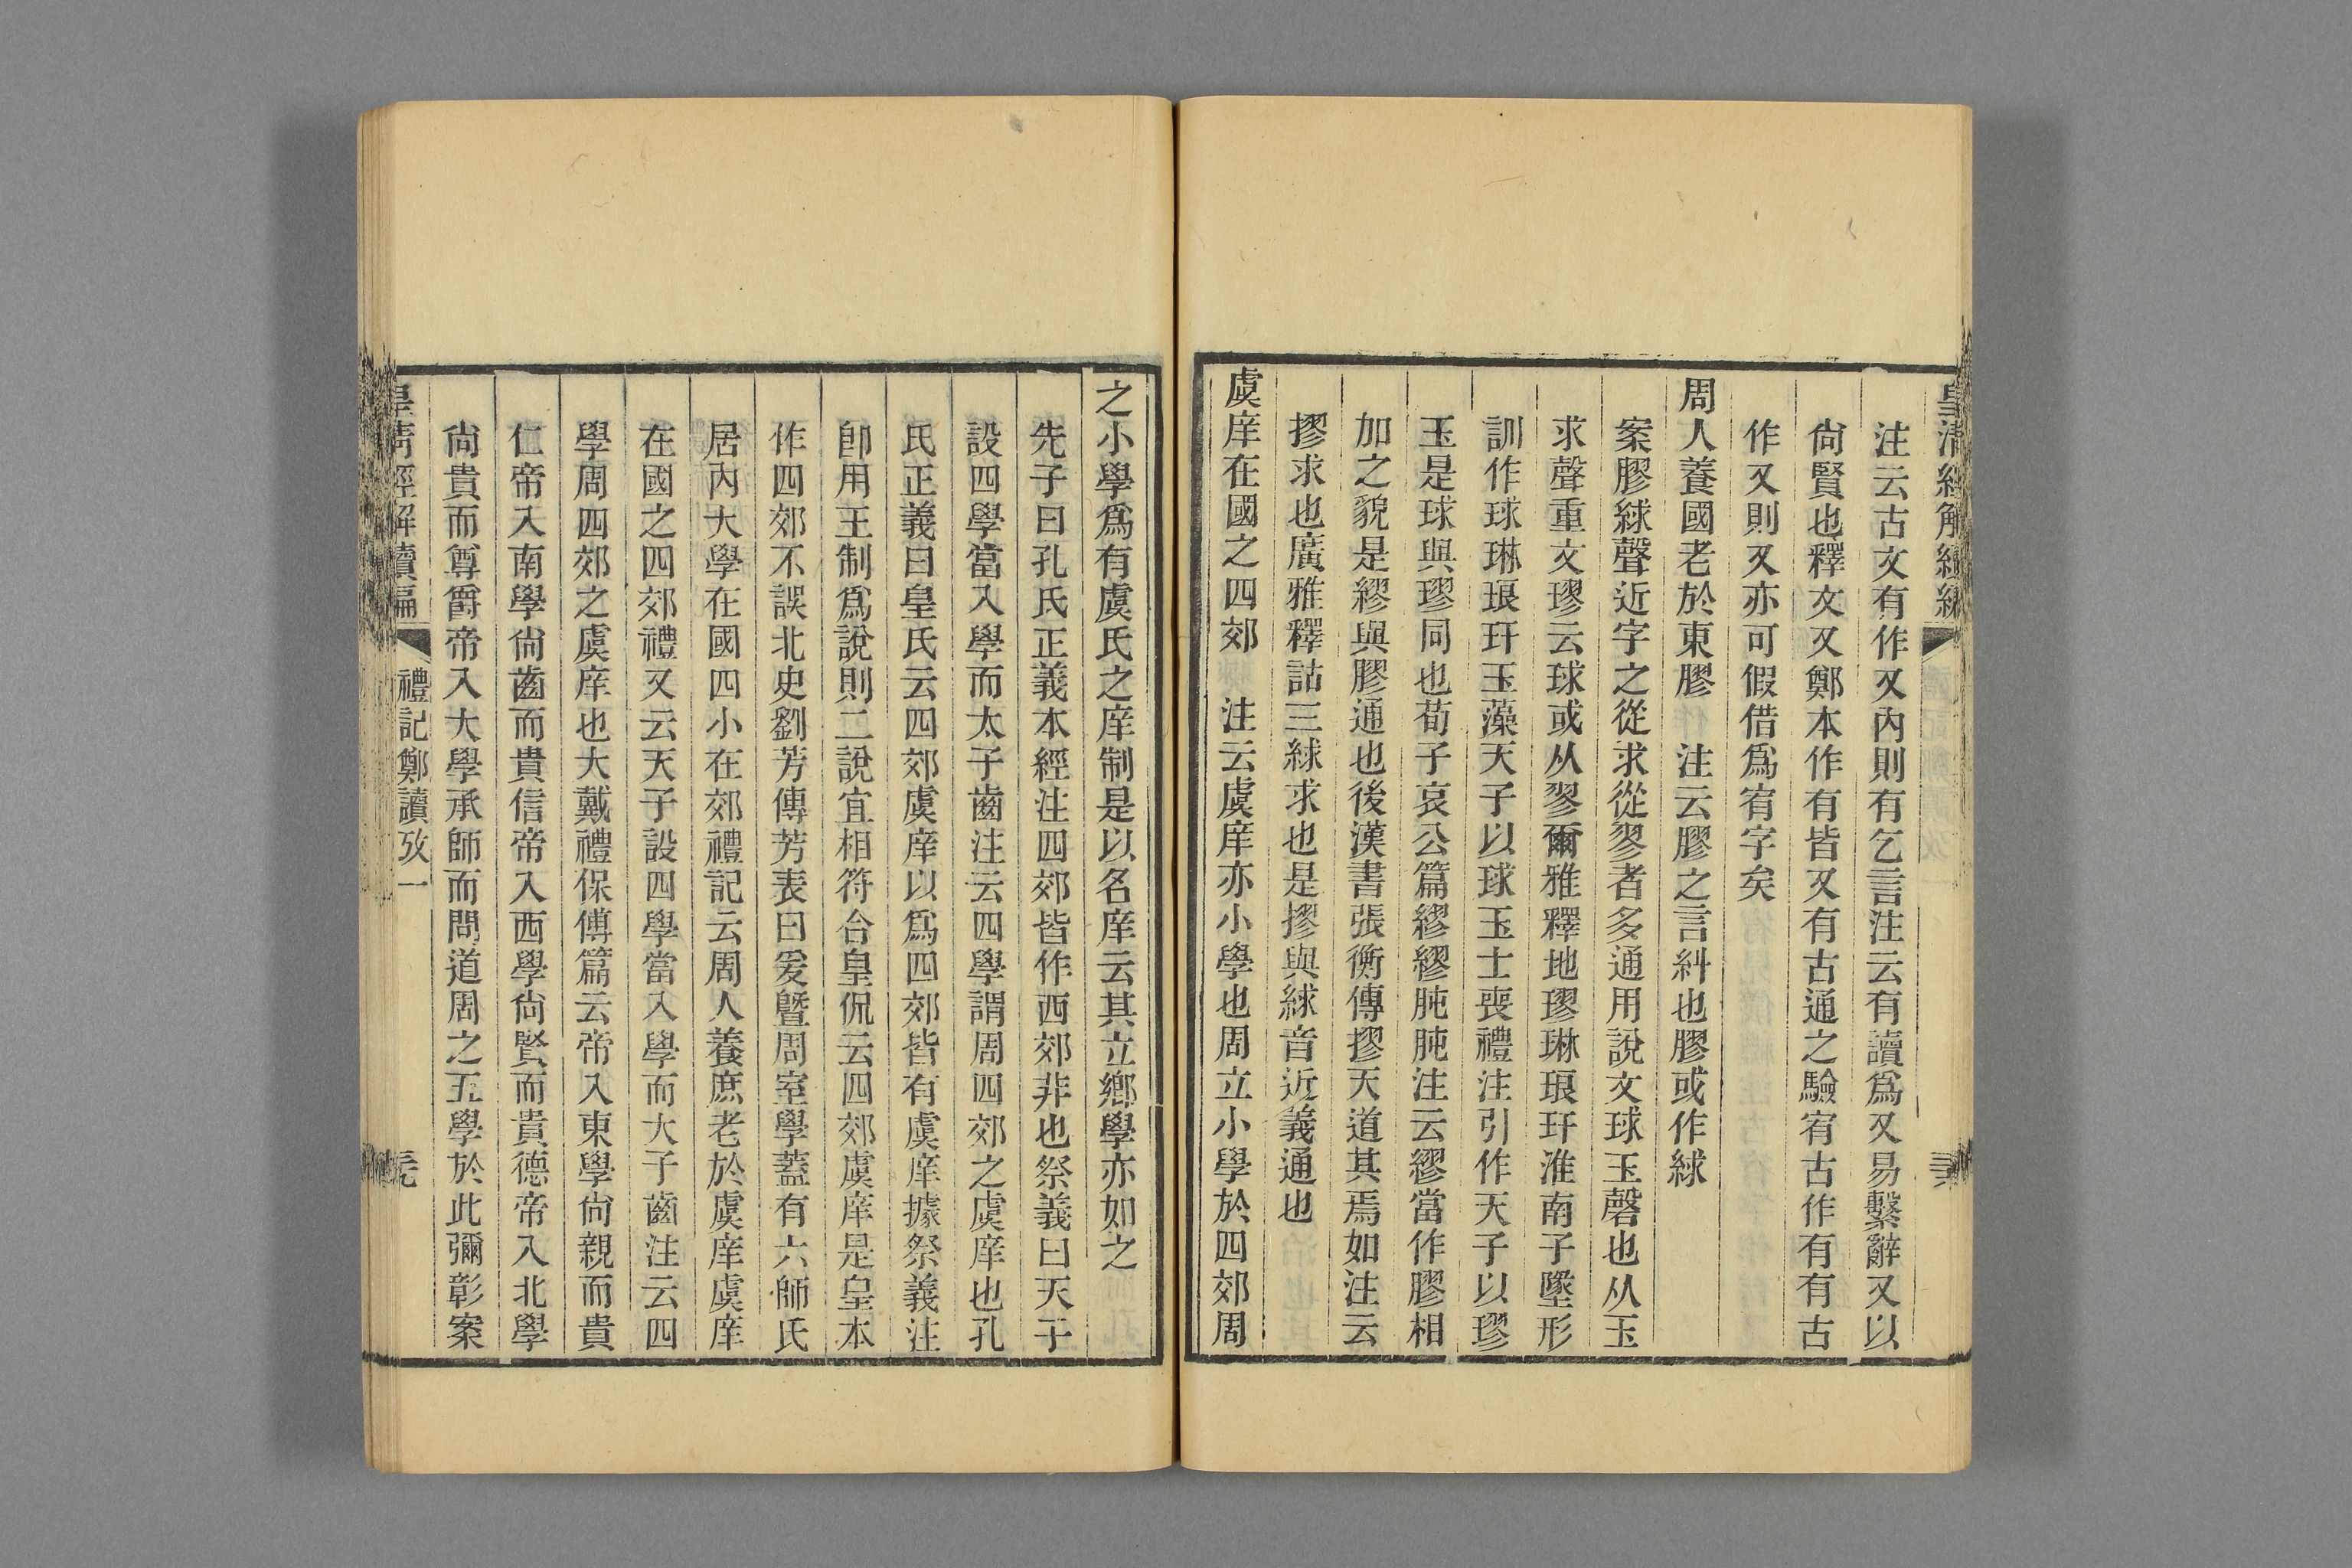 皇清經解續編
注云古文有作又內則有乞言注云有讀爲又易繫辭又以
尙賢也釋文又鄭本作有皆又有古通之驗宥古作有有古
作又則又亦可假借爲宥字矣
周人養國老於東膠　注云膠之言糾也膠或作絿
案膠絿聲近字之從求從翏者多通用說文球玉磬也从玉
求聲重文璆云球或从翏爾雅釋地璆琳琅玕淮南子墬形
訓作球琳琅玕玉藻天子以球玉士喪禮注引作天子以璆
玉是球與璆同也荀子哀公篇繆繆肫肫注云繆當作膠相
加之貌是繆與膠通也後漢書張衡傳摎天道其焉如注云
摎求也廣雅釋詁三絿求也是摎與絿音近義通也
虞庠在國之四郊　注云虞庠亦小學也周立小學於四郊周
之小學爲有虞氏之庠制是以名庠云其立鄉學亦如之
先子曰孔氏正義本經注四郊皆作西郊非也祭義曰天子
設四學當入學而太子齒注云四學謂周四郊之虞庠也孔
氏正義曰皇氏云四郊虞庠以爲四郊皆有虞庠據祭義注
卽用王制爲說則二說宜相符合皇侃云四郊虞庠是皇本
作四郊不誤北史劉芳傳芳表曰爰曁周室學蓋有六師氏
居內大學在國四小在郊禮記云周人養庶老於虞庠虞庠
在國之四郊禮又云天子設四學當入學而大子齒注云四
學周四郊之虞庠也大戴禮保傅篇云帝入東學尙親而貴
仁帝入南學尙齒而貴信帝入西學尙賢而貴德帝入北學
尙貴而尊爵帝入大學承師而問道周之五學於此彌彰案
皇淸經解續編　禮記鄭讀攷一